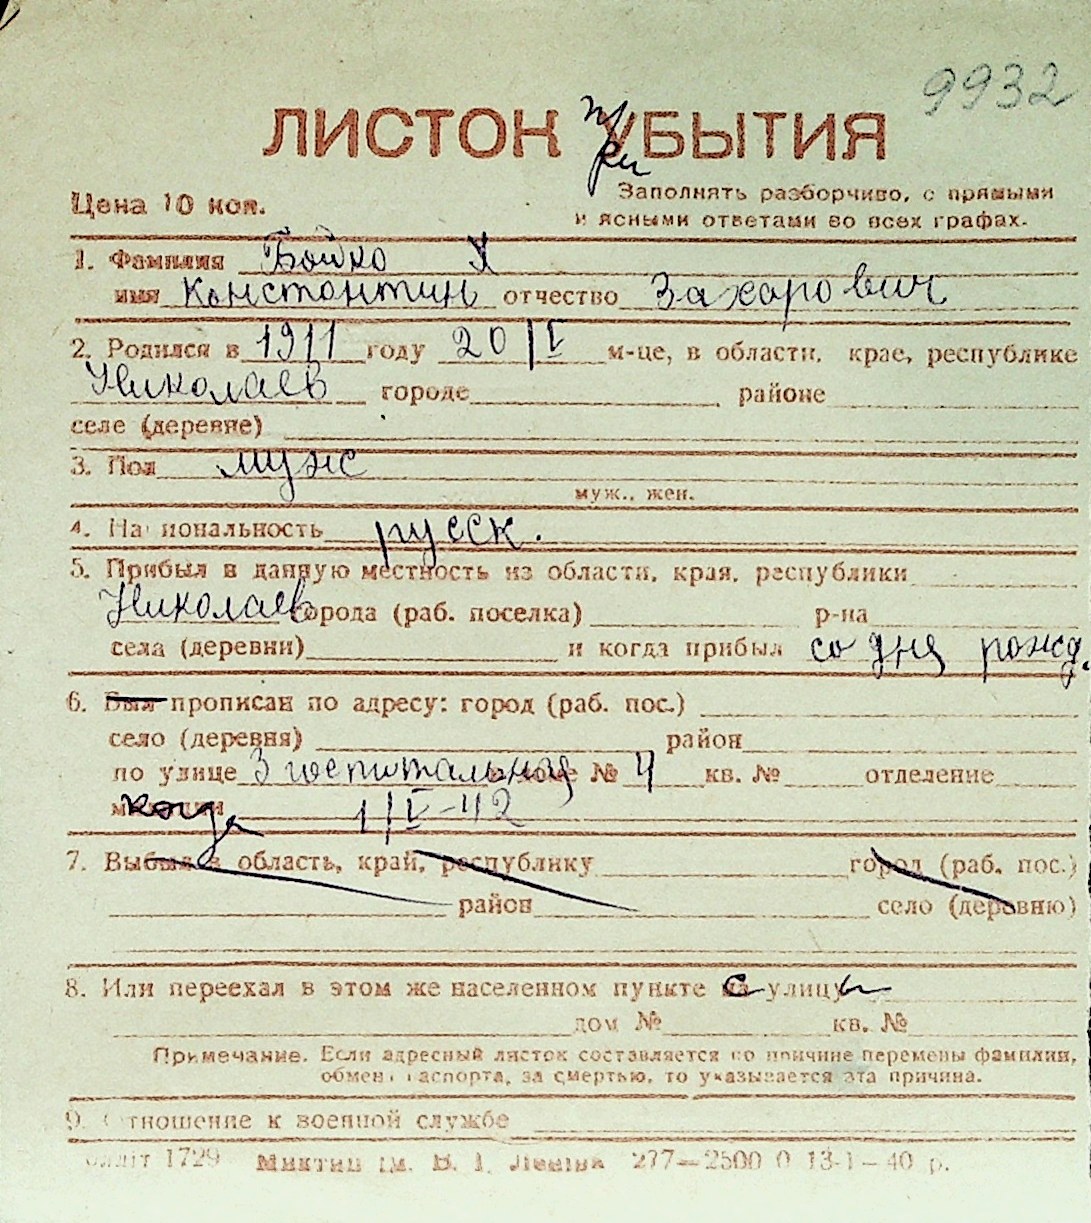 9932
ЛИСТОК при УБЫТИЯ
Цена 10 коп.
Заполнять разборчиво, с прямыми
и ясными ответами во всех графах.
1. Фамилия Бойко Х
имя Константин отчество Захарович
2. Родился в 1911 году 20/V м-це, в области, крае, республике
Николаев городе районе
селе (деревне)
3. Пол муж
муж., жен.
4. Национальность русск.
5. Прибыл в данную местность из области, края, республики
Николаев города (раб. поселка) р-на
села (деревни) и когда прибыл со дня рожд.
6. Был прописан по адресу: город (раб. пос.)
село (деревня) район
по улице 3 госпитальная доме № 4 кв. № отделение
милиции когда 1/V-42
7. Выбыл в область, край, республику город (раб. пос.)
район село (деревню)
8. Или переехал в этом же населенном пункте на с улицу ы
дом № кв. №
Примечание. Если адресный листок составляется по причине перемены фамилии,
обмена паспорта, за смертью, то указывается эта причина.
9. Отношение к военной службе
1729 Миктип ім. В. І. Леніна 277—2500 0 13-1—40 р.